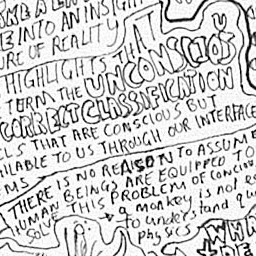 INTO AN INSIGHT
OF REALITY
HIGHLIGHTS THAT
TERM THE UNCONSCIOUS
CORRECT CLASSIFICATION
THAT ARE CONSCIOUS BUT
TO US THROUGH OUR INTERFACE
THERE IS NO REASON TO ASSUME
HUMAN BEINGS ARE EQUIPPED TO
SOLVE THIS PROBLEM OF
a monkey is not
to understand
physics